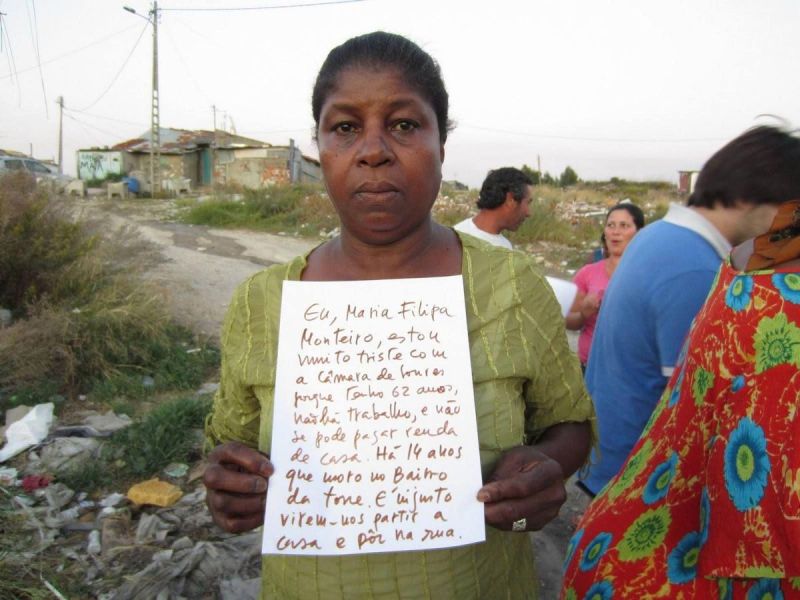 Eu, Maria Filipa
Monteiro, estou
muito triste com
a Câmara de Loures
porque tenho 62 anos,
não há trabalho, e não
se pode pagar renda
de casa. Há 14 anos
que moro no Bairro
da torre. E' injusto
virem-nos partir a
casa e pôr na rua.